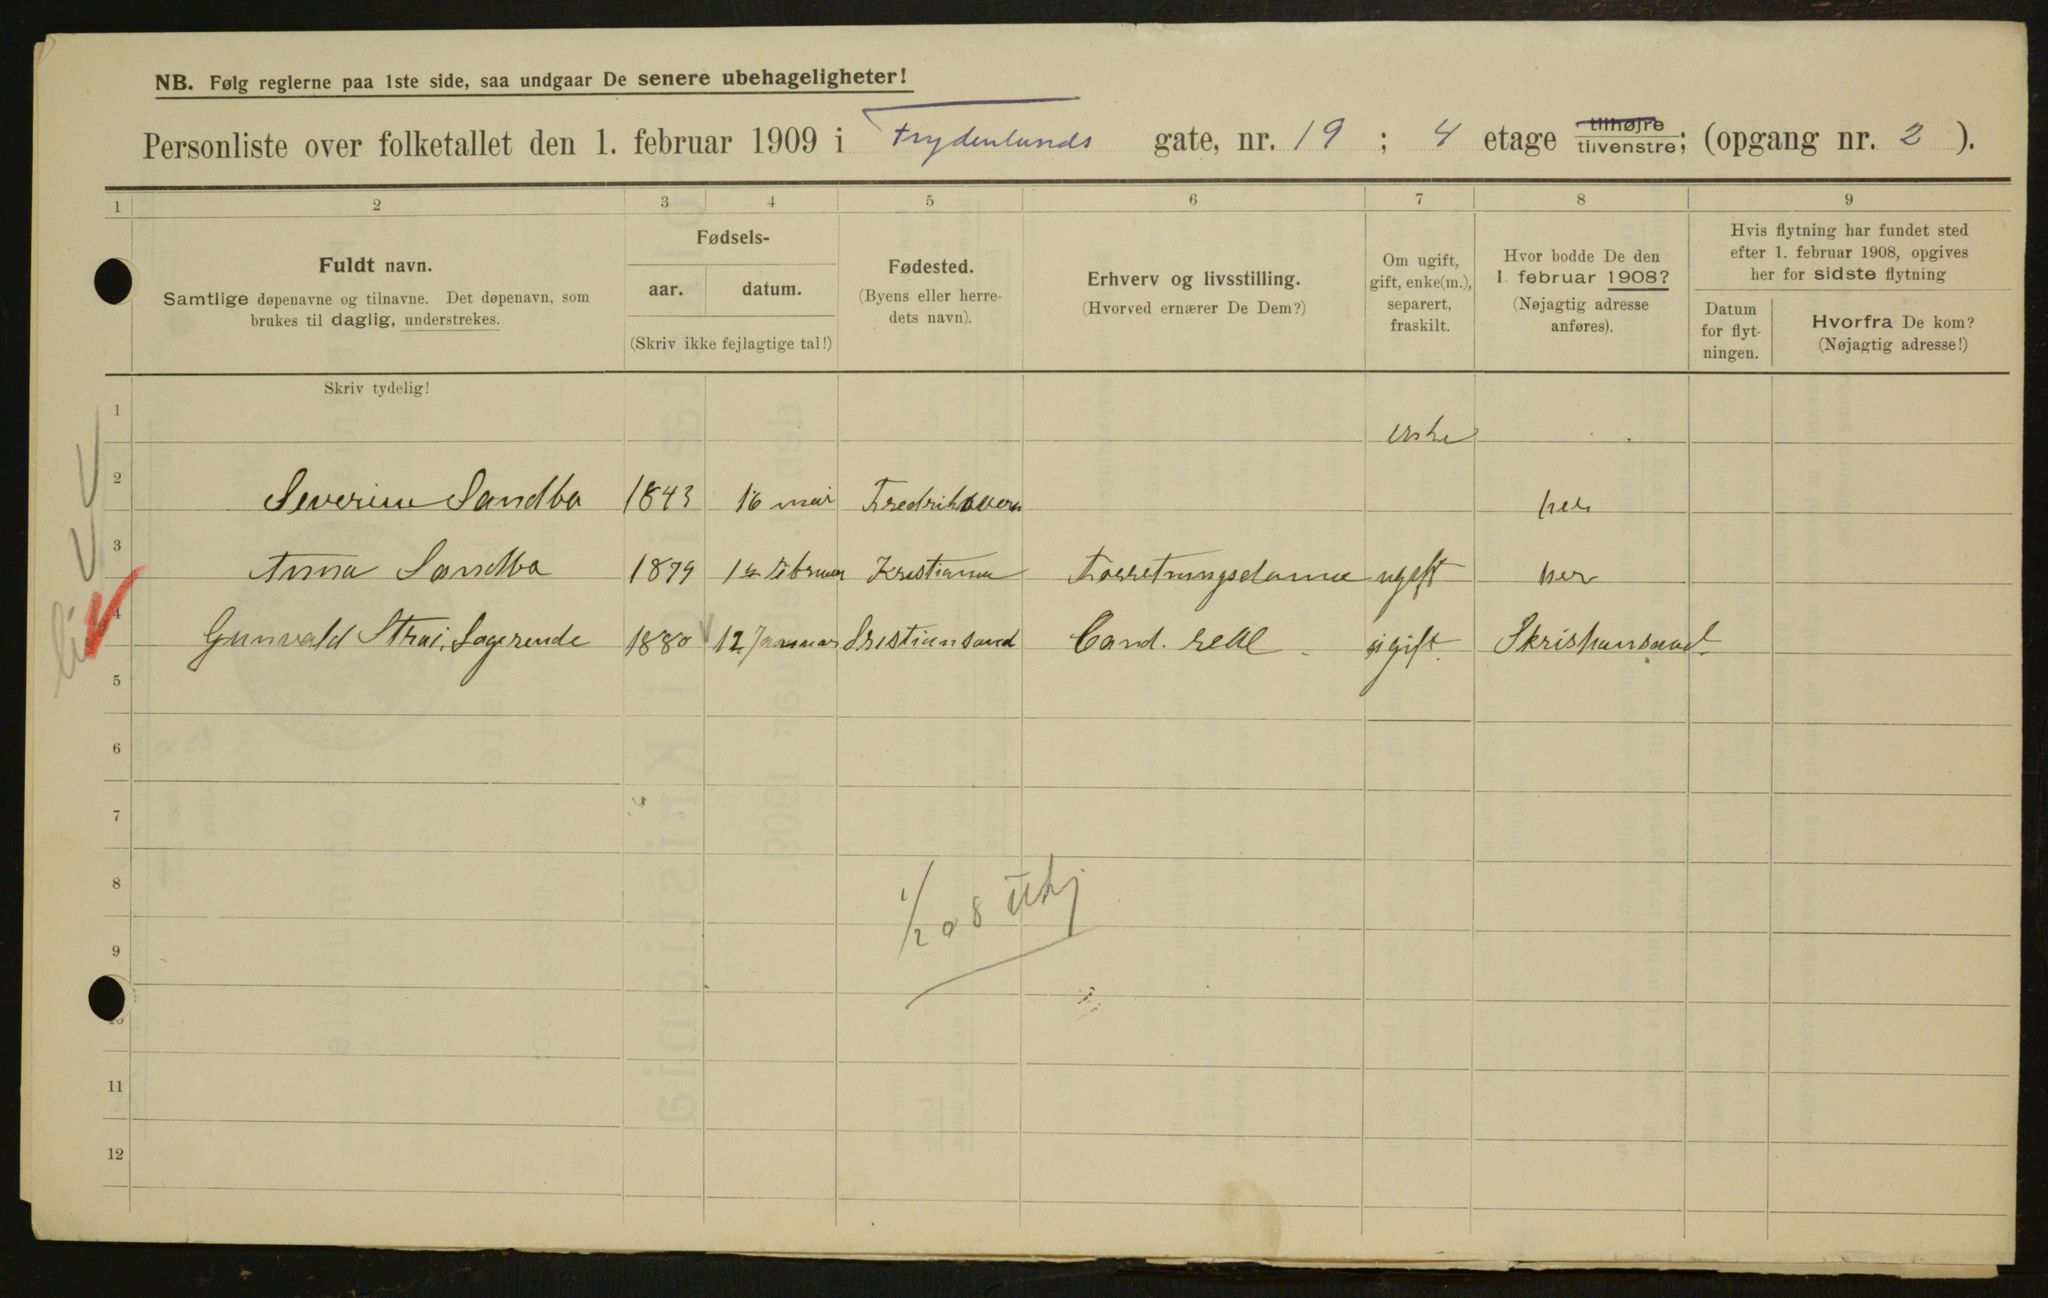 NB. Følg reglerne paa 1ste side, saa undgaar De senere ubehageligheter!
Personliste over folketallet den 1. februar 1909 i Frydenlunds gate, nr. 19 ; 4 etage tilhøjre tilvenstre; (opgang nr. 2 ).
1 2 3 4 5 6 7 8 9
Fuldt navn.
Samtlige døpenavne og tilnavne. Det døpenavn, som
brukes til daglig, understrekes.
Fødsels-
aar. datum.
(Skriv ikke fejlagtige tal!)
Fødested.
(Byens eller herre-
dets navn).
Erhverv og livsstilling.
(Hvorved ernærer De Dem?)
Om ugift,
gift, enke(m.),
separert,
fraskilt.
Hvor bodde De den
1. februar 1908?
(Nøjagtig adresse
anføres).
Hvis flytning har fundet sted
efter 1. februar 1908, opgives
her for sidste flytning
Datum
for flyt-
ningen.
Hvorfra De kom?
(Nøjagtig adresse!)
Skriv tydelig!
1
2 Severine Sandbo 1843 16 mai her
3 Anna Sandbo 1879 Kristiania Forretningsdame ugift her
4 Gunvald Strai, Logerende 1880 12 Januar Cand. real ugift
5
6
7
8
9
10
11
12
1/2 08